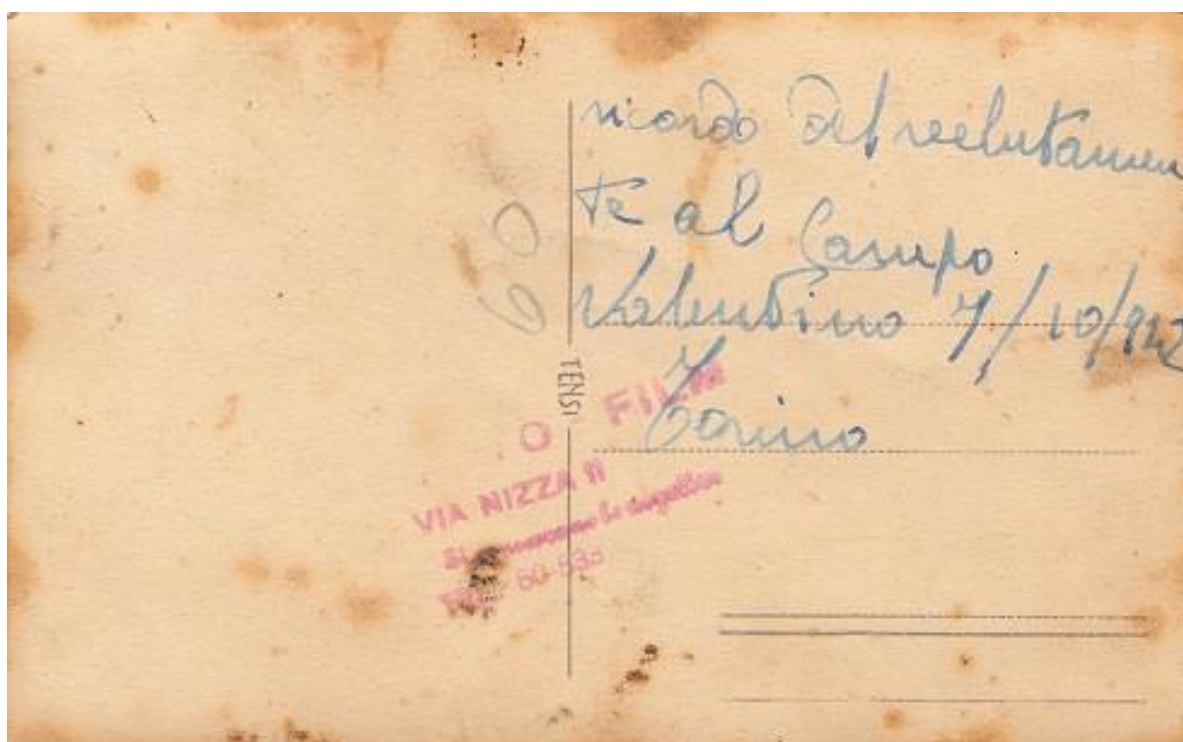 ricordo del reclutamen
te al Campo
Valentino 7/10/942
Torino
60
TENSI
O FILM
VIA NIZZA 11
Si conservano le negative
60-835